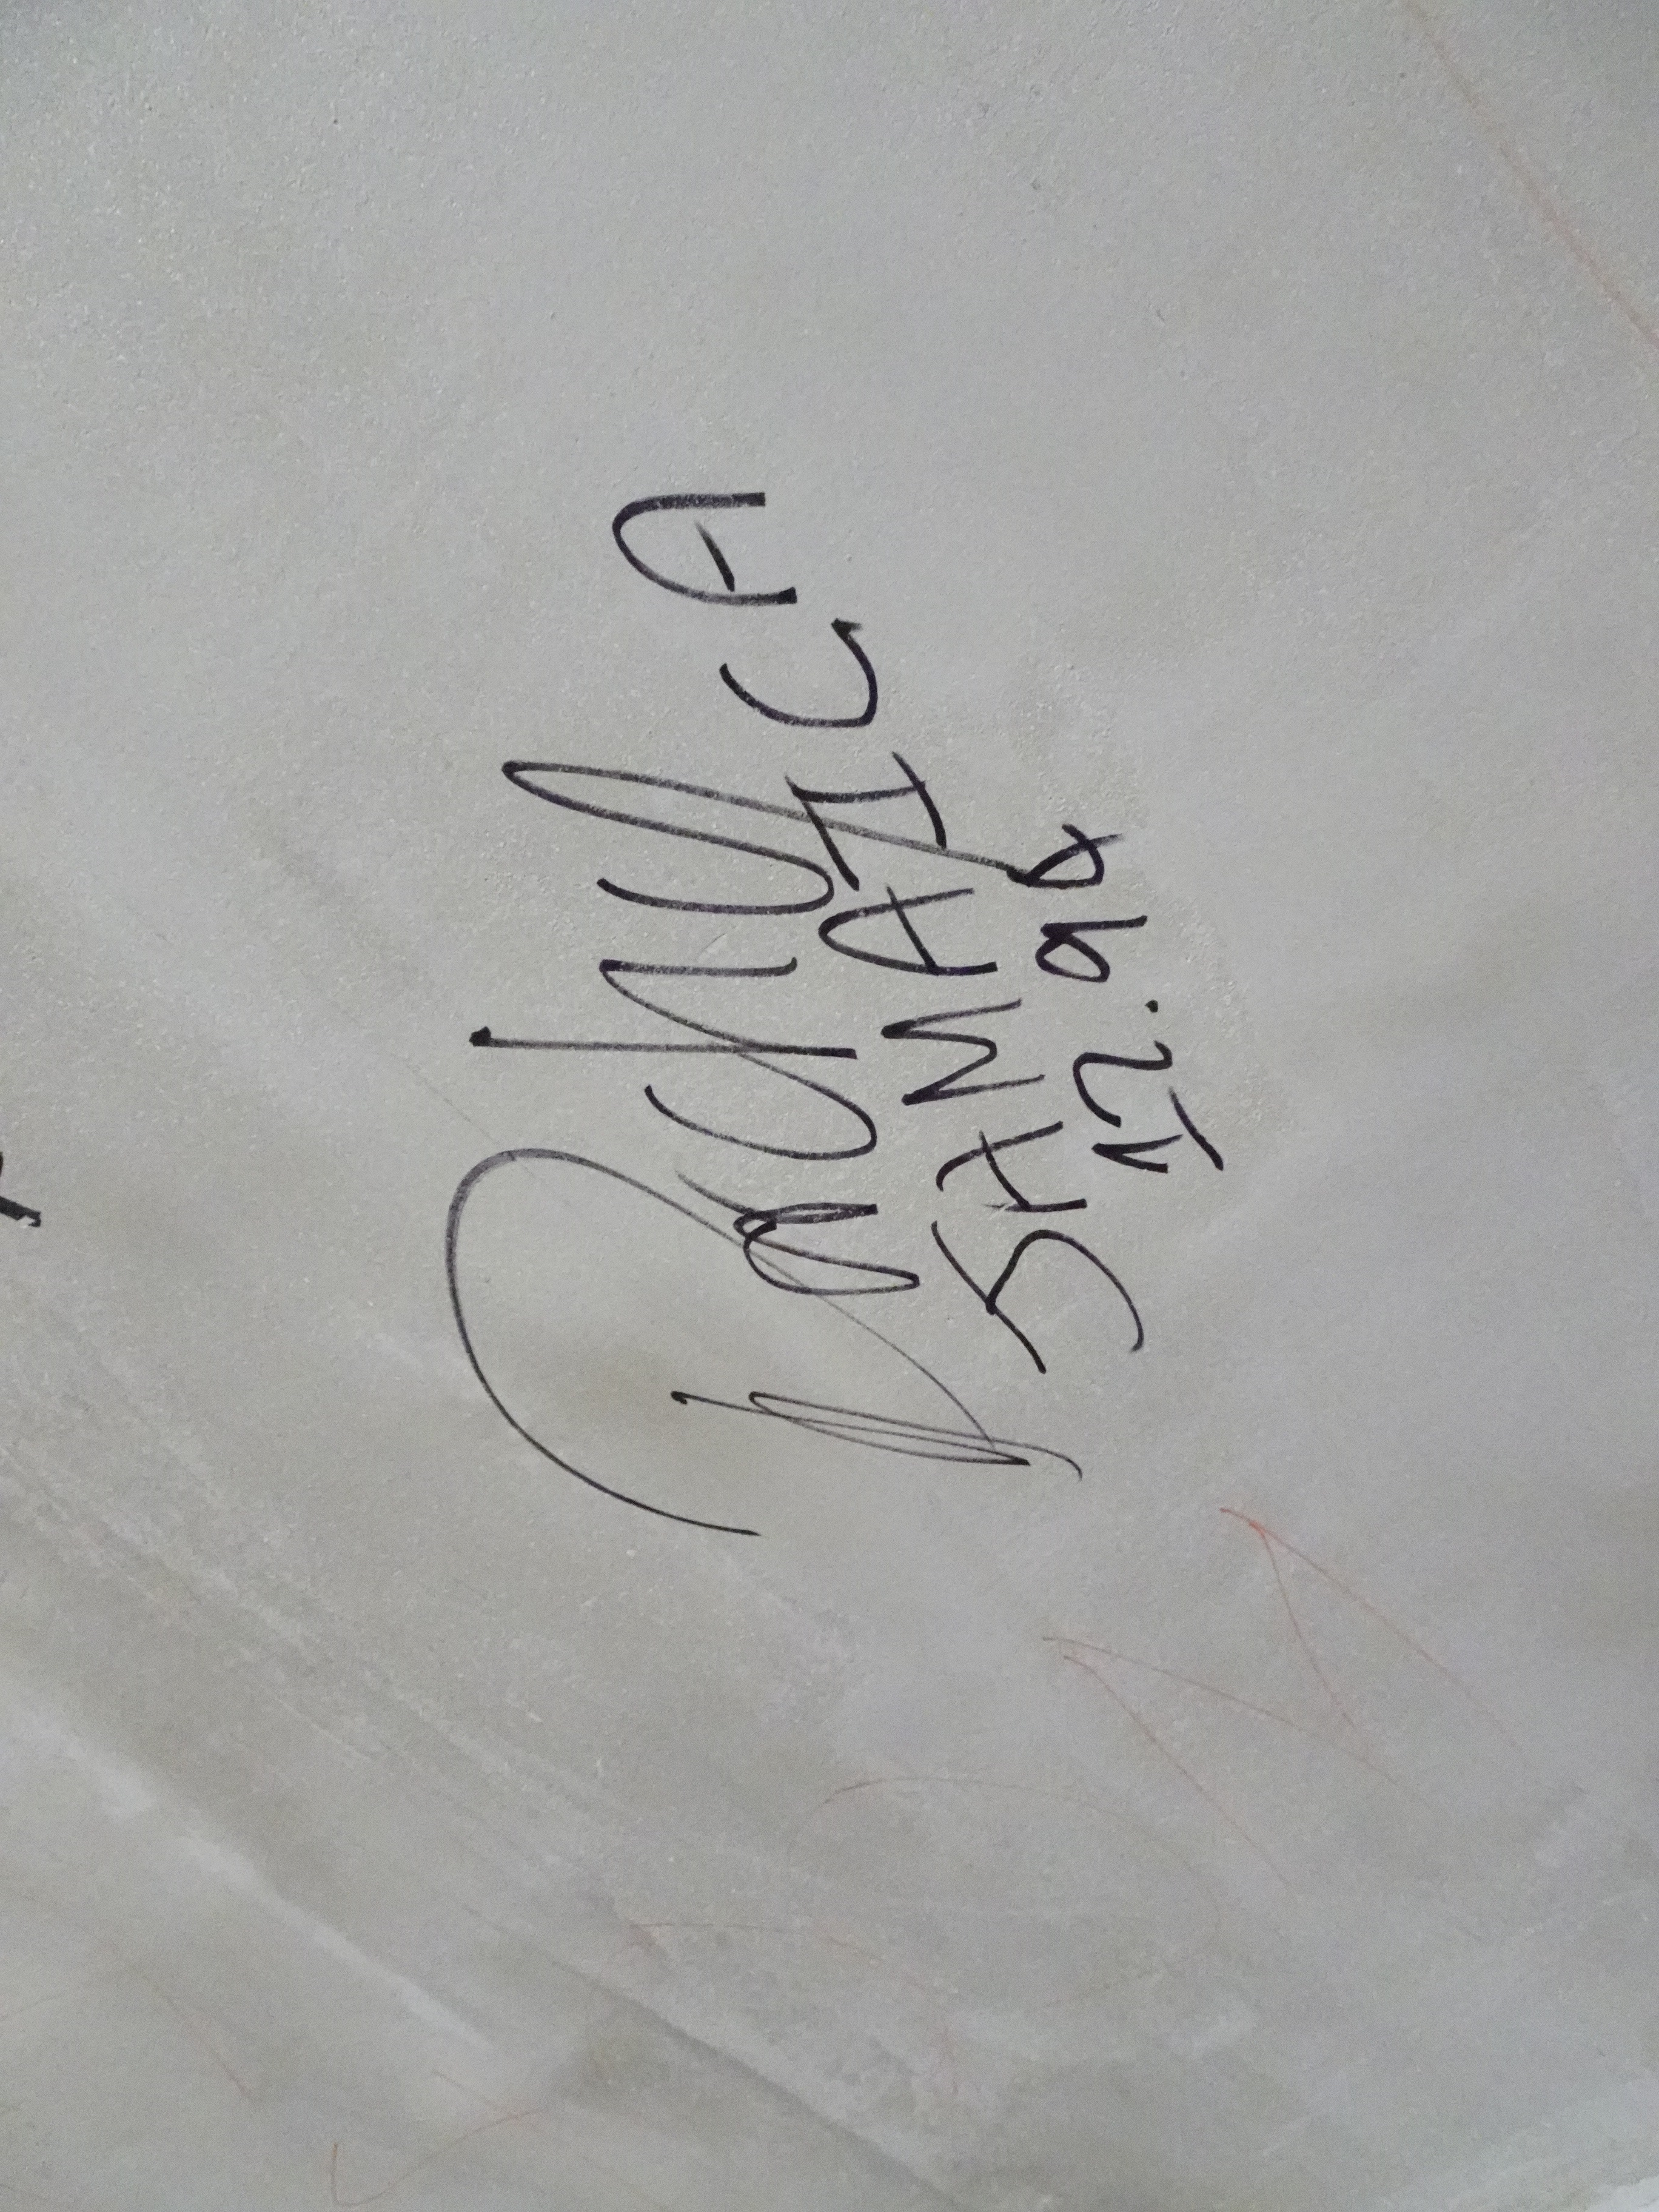 Parchy
JAMAICA
12.94